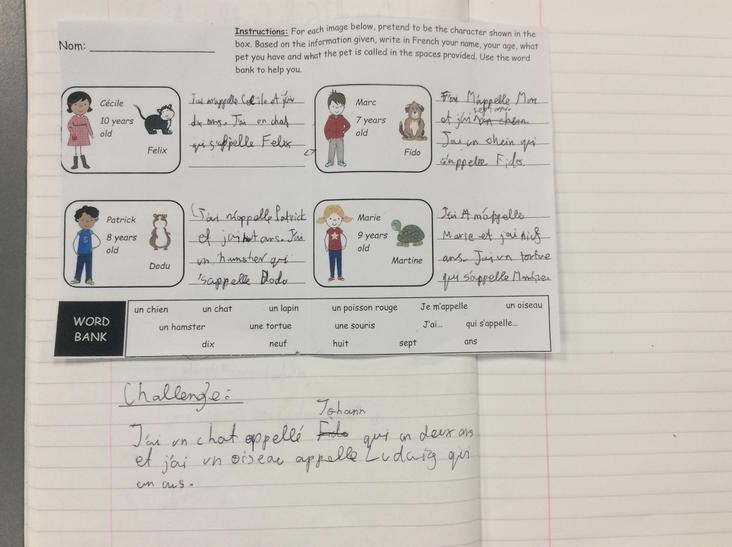 Nom:
Instructions: For each image below, pretend to be the character shown in the
box. Based on the information given, write in French your name, your age, what
pet you have and what the pet is called in the spaces provided. Use the word
bank to help you.
Cécile
10 years
old
Felix
J'ai m'appelle Cecile et j'ai
dix ans. J'ai un chat
qui s'appelle Felix
Marc
7 years
old
Fido
M'appelle Marc
sept ans
et j'ai un chein
J'ai un chein qui
s'appelle Fido.
Patrick
8 years
old
Dodu
J'ai m'appelle Patrick
et j'ai huit ans. J'ai
un hamster qui
s'appelle Dodu
Marie
9 years
old
Martine
J'ai m'appelle
Marie et j'ai neuf
ans. J'ai un tortue
qui s'appelle Martine
WORD
BANK
un chien un chat un lapin un poisson rouge Je m'appelle un oiseau
un hamster une tortue une souris J'ai... qui s'appelle...
dix neuf huit sept ans
Challenge:
Johann
J'ai un chat appellé Fido qui an deux ans
et j'ai un oiseac appelle Ludwig qui
an ans.